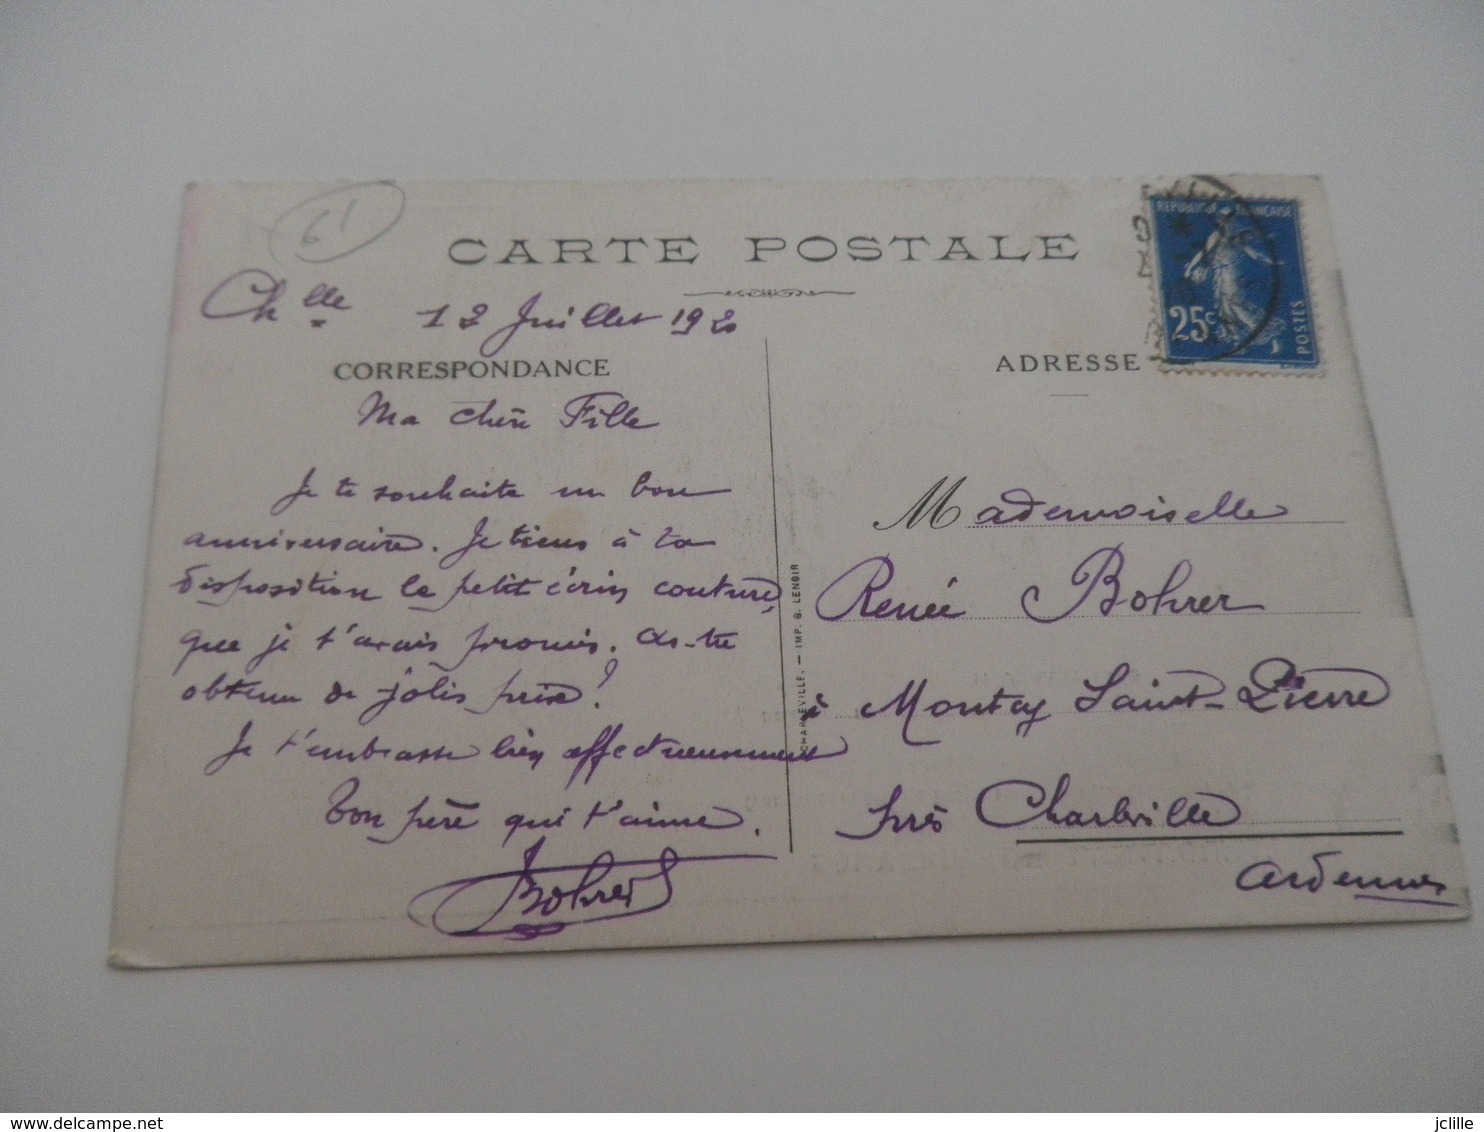 61
CARTE POSTALE
Ch lle 12 Juillet 1920
CORRESPONDANCE
Ma chère Fille
Je te souhaite un bon
anniversaire. Je tiens à ta
disposition le petit écrin couture,
que je t'avais promis. As-tu
obtenu de jolis prix?
Je t'embrasse bien affectueusement
Ton père qui t'aime.
Bohrer
CHARLEVILLE. — IMP. G. LENOIR
REPUBLIQUE FRANÇAISE
25c
POSTES
ADRESSE
Mademoiselle
Renée Bohrer
à Montcy Saint-Pierre
près Charleville
Ardennes
www.delcampe.net
jclille